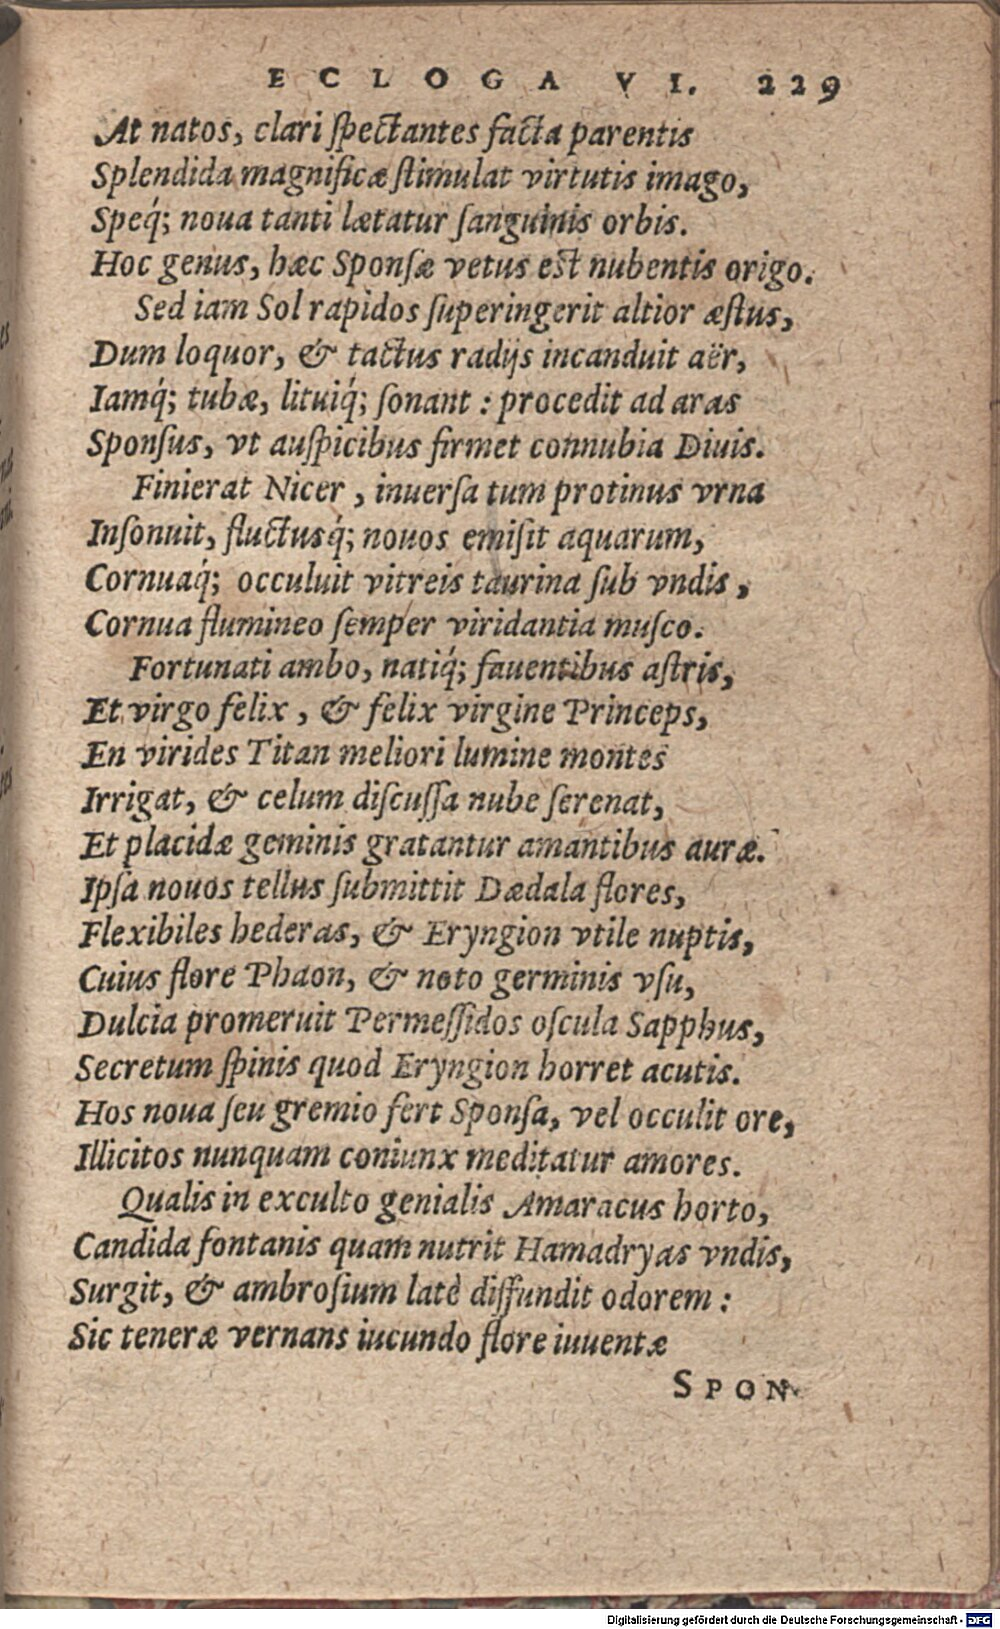 ECLOGA VI. 229
At natos, clari ſpectantes facta parentis
Splendida magnificæ ſtimulat virtutis imago,
Speq́; noua tanti lætatur ſanguinis orbis.
Hoc genus, hæc Sponſæ vetus est nubentis origo.
Sed iam Sol rapidos ſuperingerit altior æſtus,
Dum loquor, & tactus radijs incanduit aër,
Iamq́; tubæ, lituiq́; ſonant : procedit ad aras
Sponſus, vt auſpicibus firmet connubia Diuis.
Finierat Nicer, inuerſa tum protinus vrna
Inſonuit, fluctusq́; nouos emiſit aquarum,
Cornuaq́; occuluit vitreis taurina ſub vndis,
Cornua flumineo ſemper viridantia muſco.
Fortunati ambo, natiq́; fauentibus aſtris,
Et virgo felix, & felix virgine Princeps,
En virides Titan meliori lumine montes
Irrigat, & celum diſcuſſa nube ſerenat,
Et placidæ geminis gratantur amantibus auræ.
Ipſa nouos tellus ſubmittit Dædala flores,
Flexibiles hederas, & Eryngion vtile nuptis,
Cuius flore Phaon, & noto germinis vſu,
Dulcia promeruit Permeſſidos oſcula Sapphus,
Secretum ſpinis quod Eryngion horret acutis.
Hos noua ſeu gremio fert Sponſa, vel occulit ore,
Illicitos nunquam coniunx meditatur amores.
Qualis in exculto genialis Amaracus horto,
Candida fontanis quam nutrit Hamadryas vndis,
Surgit, & ambroſium latè diffundit odorem :
Sic teneræ vernans iucundo flore iuuentæ
SPON
Digitalisierung gefördert durch die Deutsche Forschungsgemeinschaft - DFG